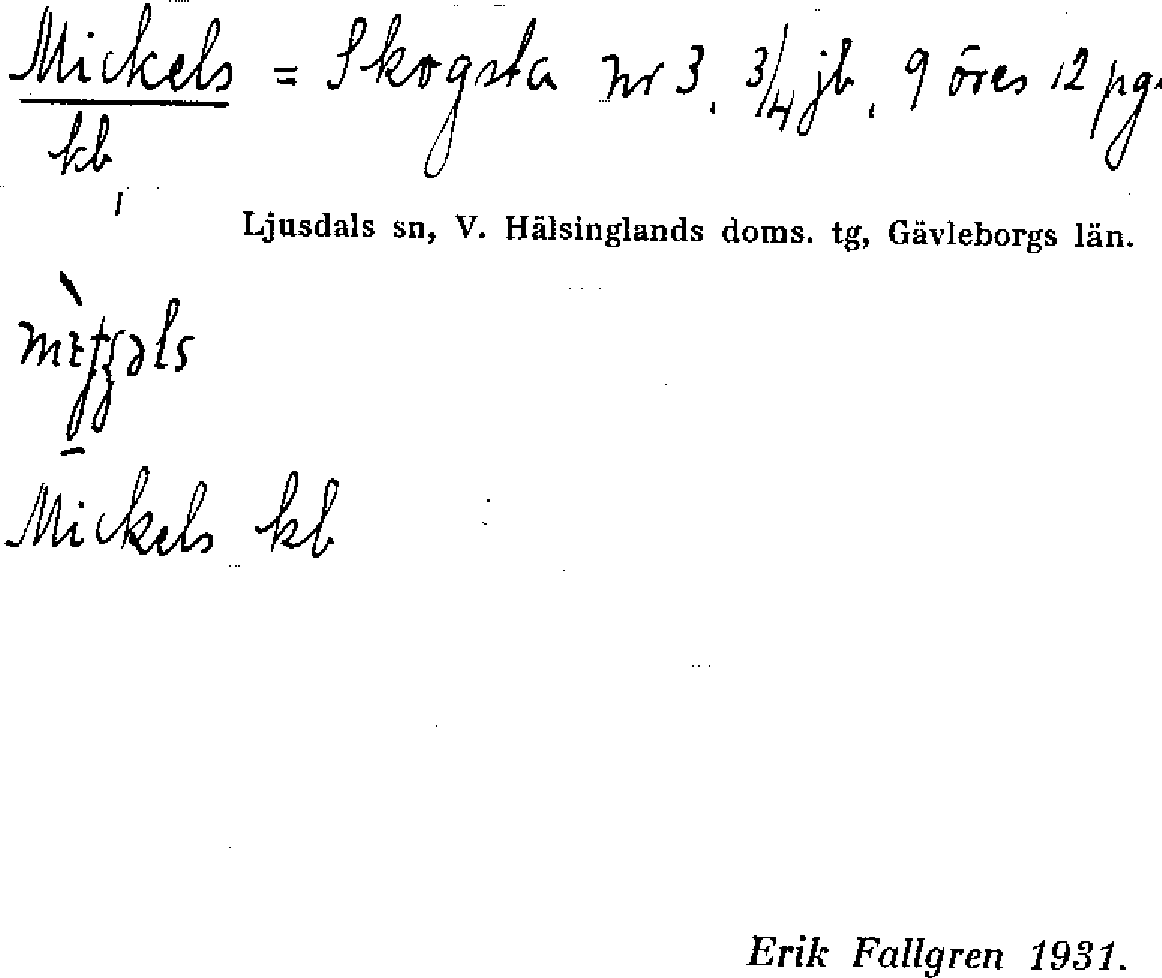 Mickels = Skogsta nr 3. 3/4 jb. 9 öres 12 pg.
kb,
Ljusdals sn, V. Hälsinglands doms. tg, Gävleborgs län.
Mickels kb
Erik Fallgren 1931.